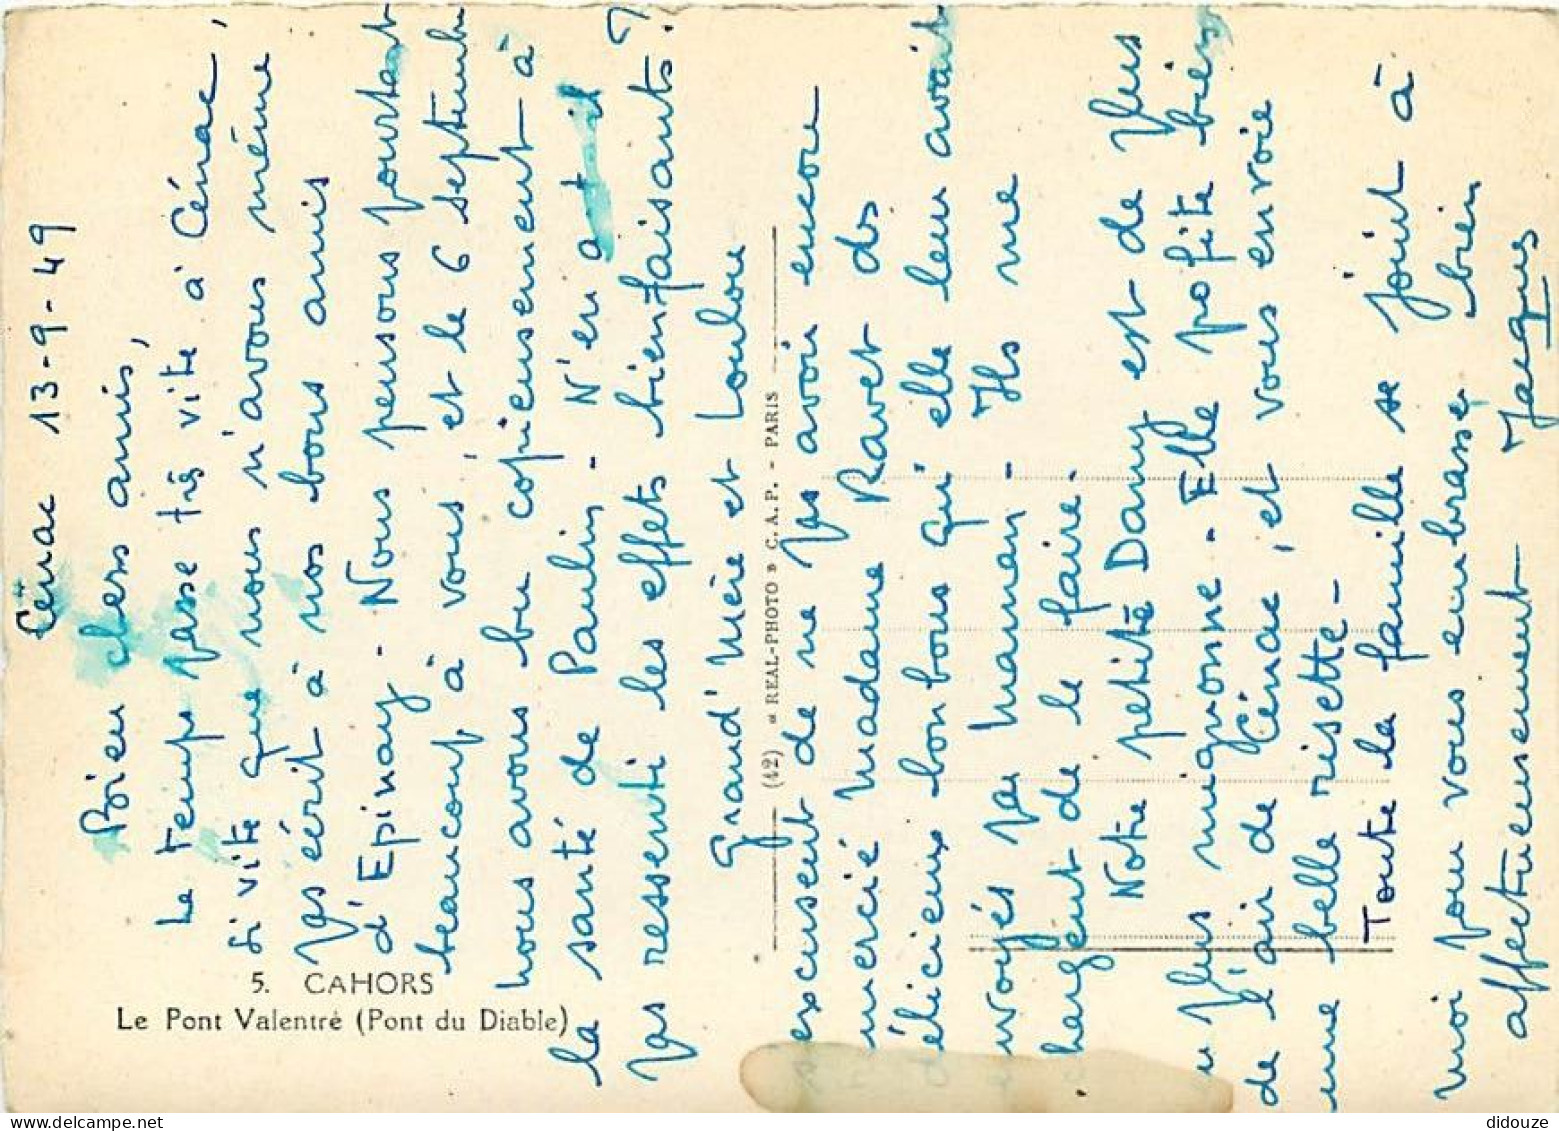 Cénac 13-9-49
Bien chers amis,
Le temps passe très vite à Cénac,
si vite que nous n'avons même
pas écrit à nos bons amis
d'Epinay - Nous pensons pourtant
beaucoup à vous, et le 6 septembre
nous avons bu copieusement à
la santé de Paulin - N'en a t il
pas ressenti les effets bienfaisants?
Grand'Mère et Loulou
s'excusent de ne pas avoir encore
remercié Madame Ravet des
délicieux bonbons qu'elle leur avait
envoyés par Maman - Ils me
chargent de le faire.
Notre petite Dany est de plus
en plus mignonne - Elle profite bien
de l'air de Cénac, et vous envoie
une belle risette -
Toute la famille se joint à
moi pour vous embrasser bien
affectueusement
Jacques
5. CAHORS
Le Pont Valentré (Pont du Diable)
(42) « REAL-PHOTO » C. A. P. - PARIS
didouze